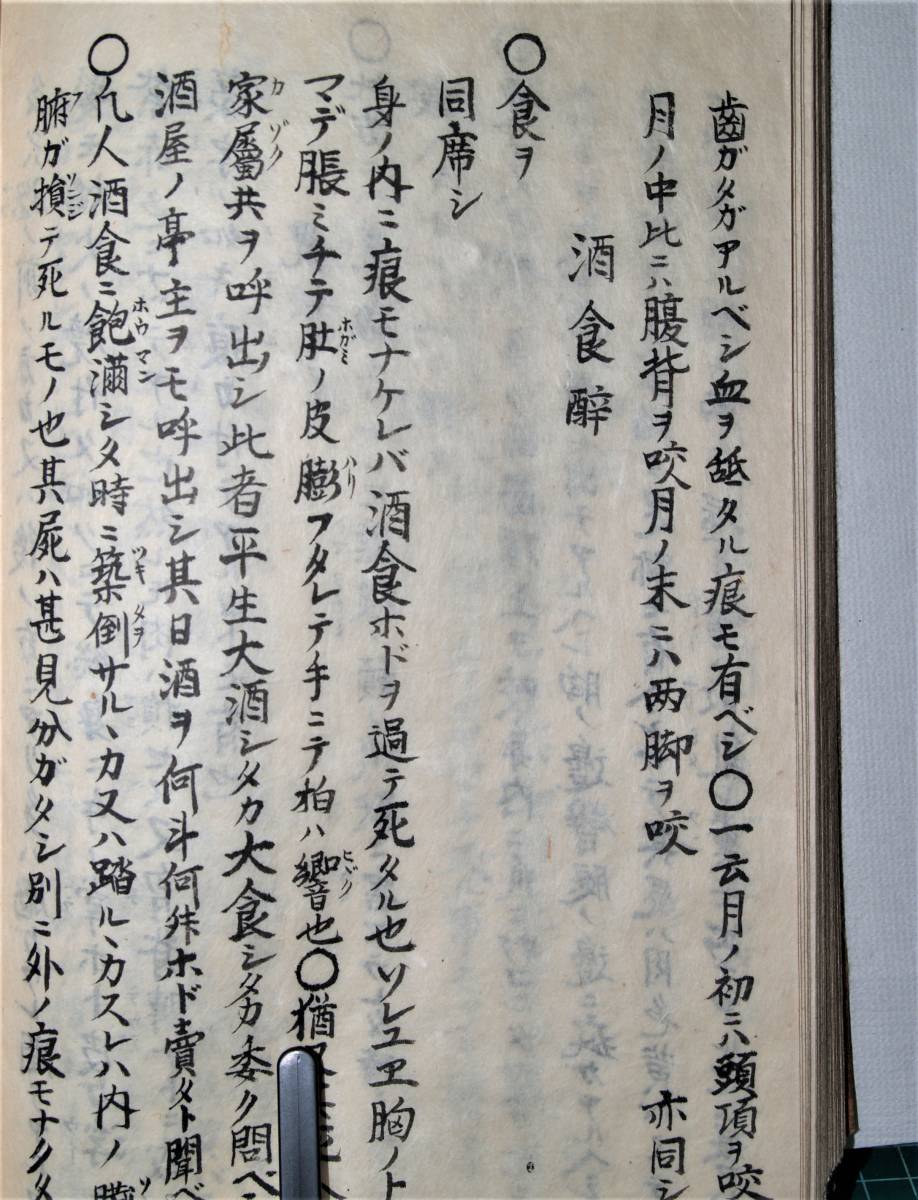 歯ガタガアルベシ血ヲ舐タル痕モ有ベシ〇一云月ノ初ニハ頭項ヲ咬
月ノ中比ニハ腹背ヲ咬月ノ末ニハ両脚ヲ咬 亦同シ
酒食醉
〇食ヲ
同席シ
身ノ内ニ痕モナケレバ酒食ホドヲ過テ死タル也ソレユヱ胸ノト
マデ脹ミチテ肚ホガミノ皮膨ハリフタレテ手ニテ拍ハ響ヒヾク也〇猶又
家屬カゾク共ヲ呼出シ此者平生大酒シタカ大食シタカ委ク問ベシ
酒屋ノ亭主ヲモ呼出シ其日酒ヲ何斗何舛ホド賣タト聞ベ
〇凡人酒食ニ飽滿ホウマンシタ時ニ築倒ツキタヲサルヽカ又ハ踏ルヽカスレハ内ノ臓
腑ガ損ソンジテ死ルモノ也其屍ハ甚見分ガタシ別ニ外ノ痕モナクタ